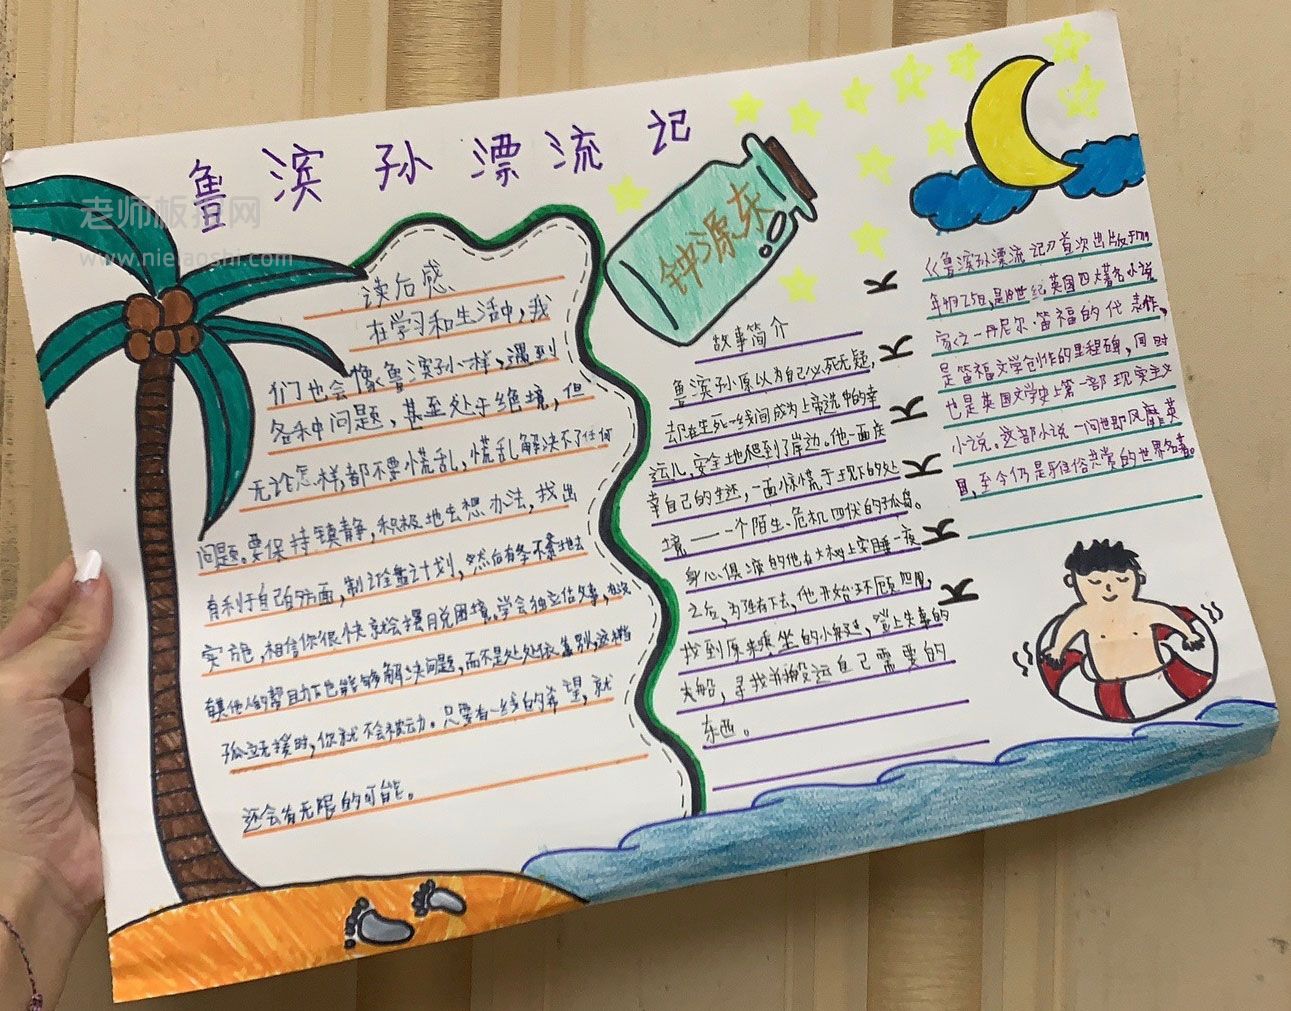 鲁滨孙漂流记
老师板报网
www.nielaoshi.com
钟源东
读后感
在学习和生活中，我
们也会像鲁滨孙一样，遇到
各种问题，甚至处于绝境，但
无论怎样，都不要慌乱，慌乱解决不了任何
问题。要保持镇静，积极地去想办法，找出
有利于自己的方面，制定全盘计划，然后有条不紊地去
实施，相信你很快就会摆脱困境。学会独立做事，
他人的帮助下也能够解决问题，而不是处处依靠别人，这样当
孤立无援时，你就不会被动。只要有一线的希望，就
还会有无限的可能。
故事简介
鲁滨孙原以为自己必死无疑，
却在生死一线间成为上帝选中的幸
运儿，安全地爬到了岸边。他一面庆
幸自己的生还，一面惊慌于现下的处
境——一个陌生、危机四伏的孤岛。
身心俱疲的他在大树上安睡一夜
之后，为继存下去，他开始环顾四周，
找到原来乘坐的小艇，登上失事的
大船，寻找并搬运自己需要的
东西。
《鲁滨孙漂流记》首次出版于1719
年4月25日，是18世纪英国四大著名小说
家之一丹尼尔·笛福的代表作，
是笛福文学创作的里程碑，同时
也是英国文学史上第一部现实主义
小说。这部小说一问世即风靡英
国，至今仍是雅俗共赏的世界名著。